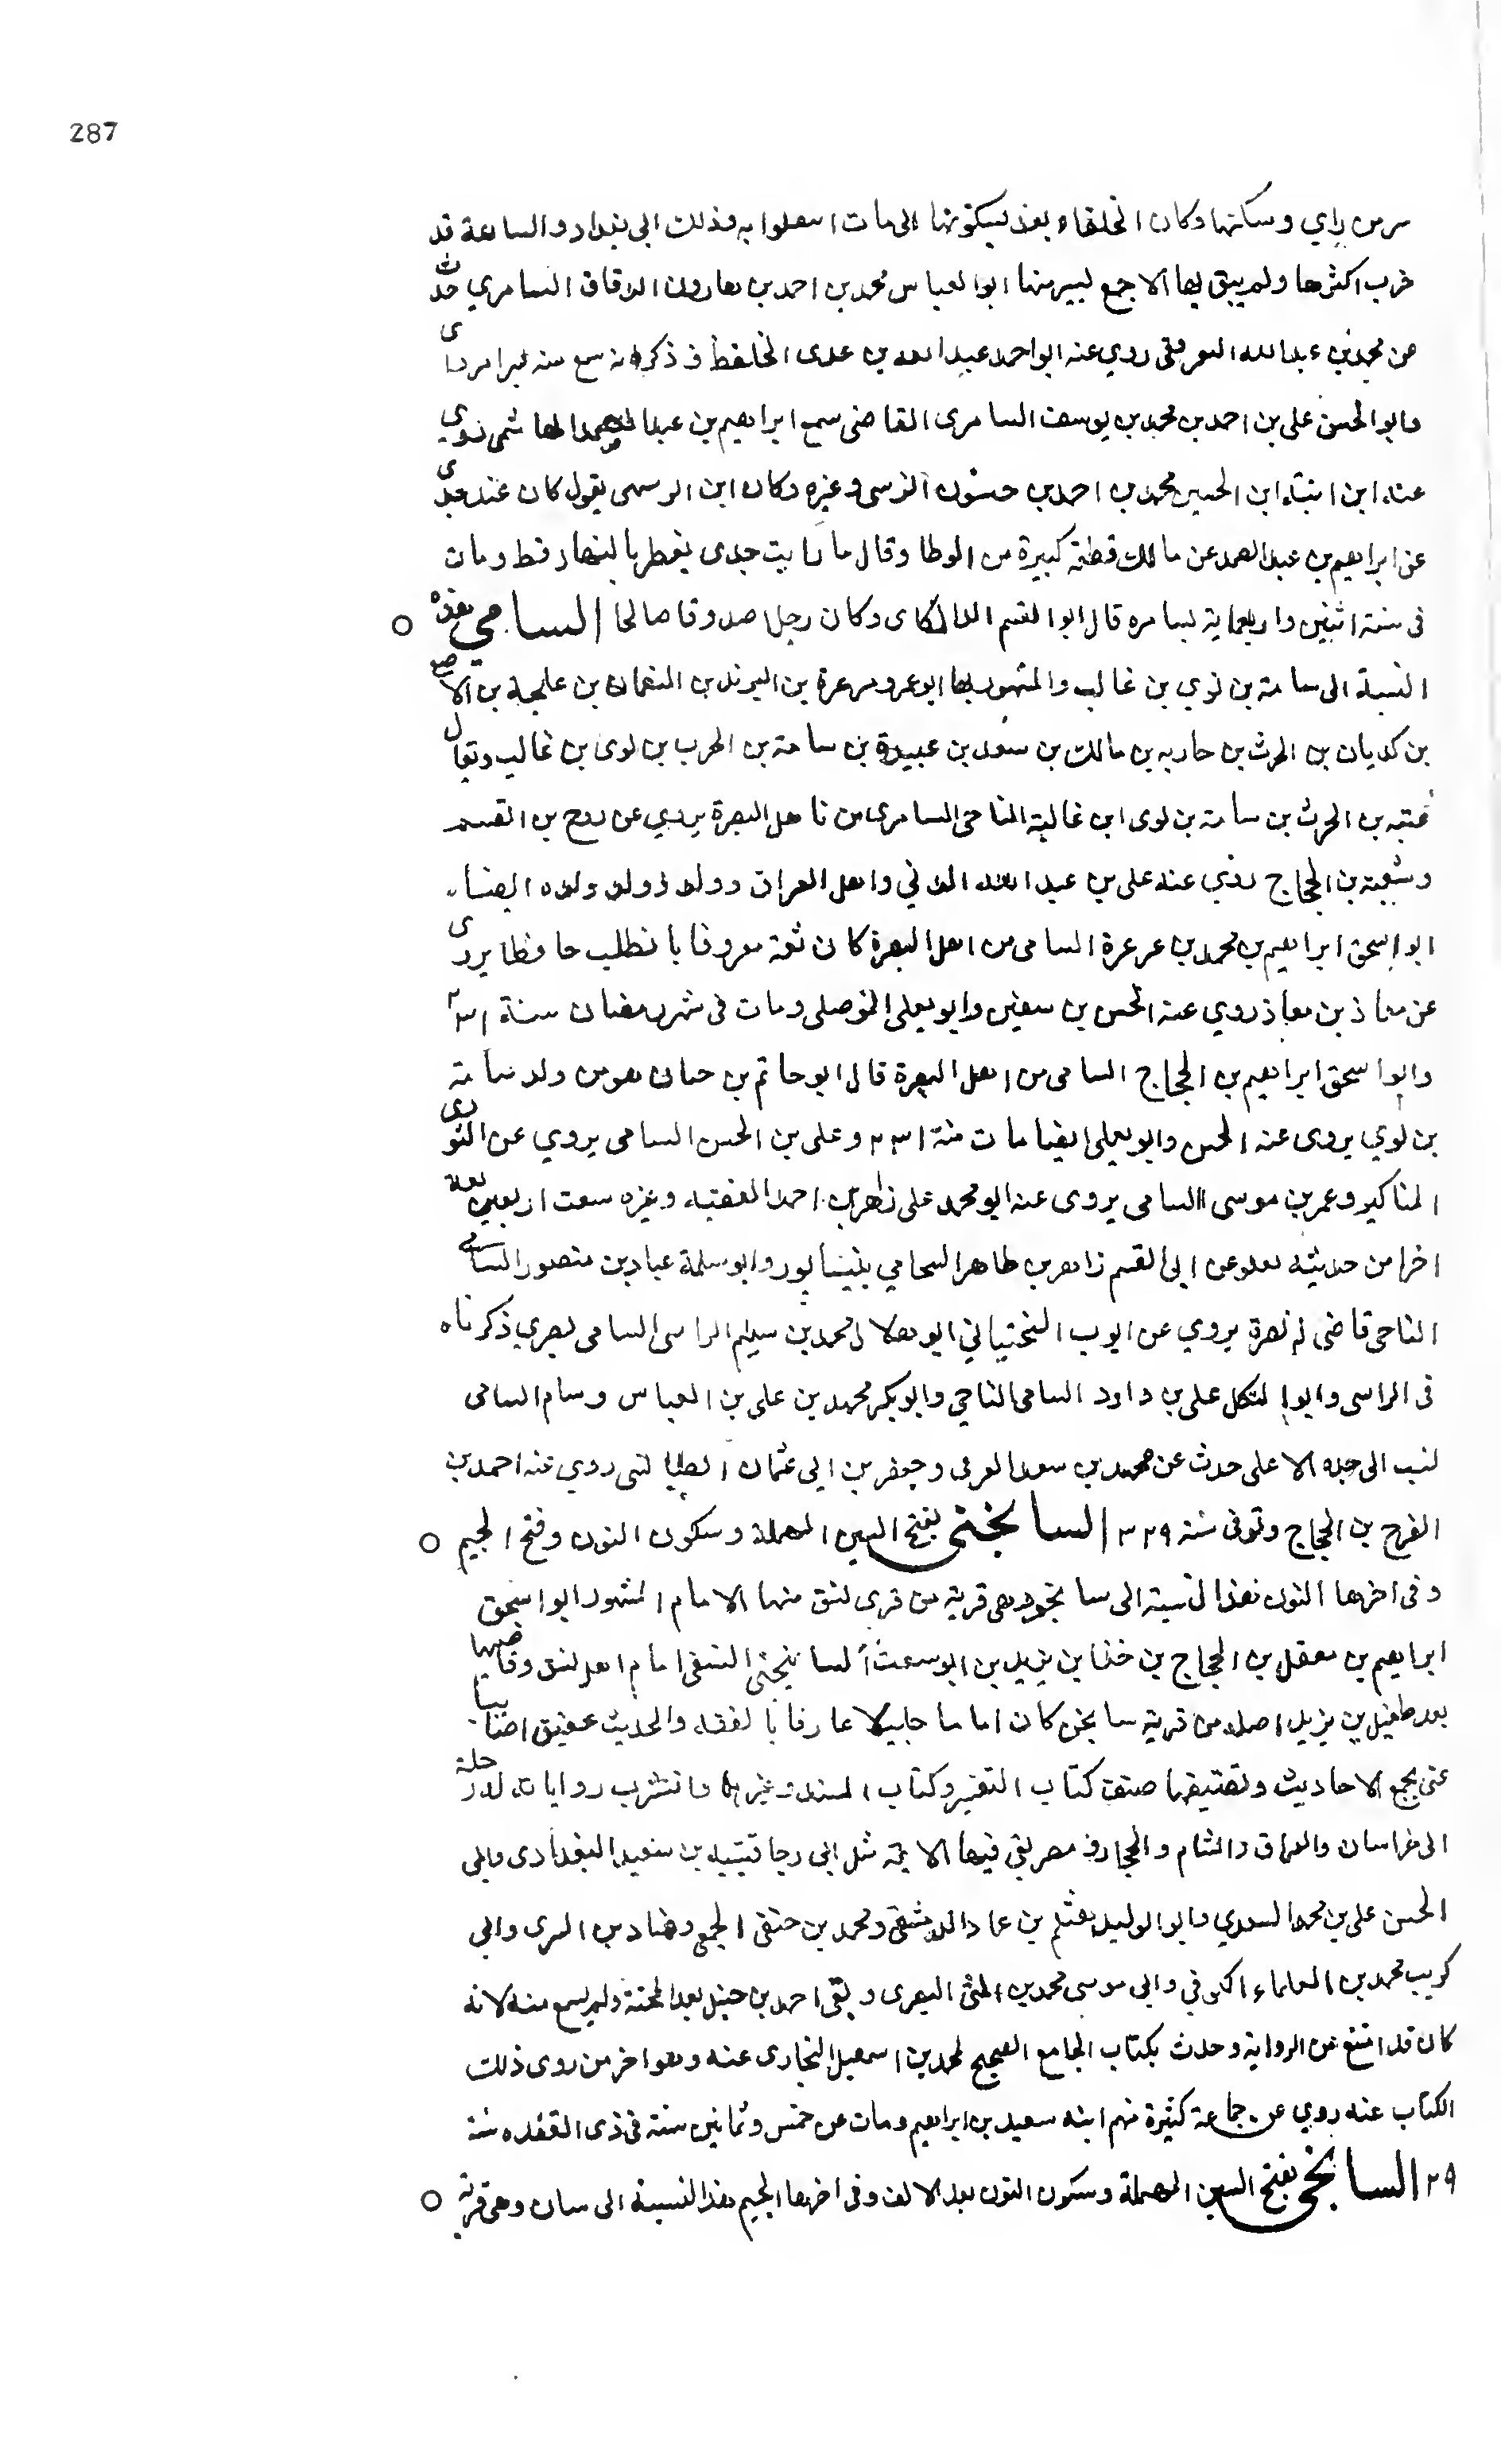 287
سر من راي وسكنها وكان الخلفاء بعد يسكنونها الى مات انتقلوا بعد ذلك الى بغداد والساعة قد
خرب اكثرها ولم يبق بها الا جمع يسير منها ابو العباس محمد بن احمد بن هارون الدقاق السامري حدث
عن محمد بن عبد الله روي عنه ابو احمد عبد الله بن عدى الحافظ وذكر انه سمع منه
وابو الحسن على بن احمد بن محمد بن يوسف السامرى القاضى سمع ابراهيم بن عبد الصمد الهاشمى روى
عنه ابن ابنته ابن الحسين محمد بن احمد بن حسنون النرسى وغيره وكان ابن النرسى يقول كان عند جدى
عن ابراهيم بن عبد الصمد عن مالك قطعة كبيرة من الموطا وقال ما رايت جدى يفطر بالنهار قط ومات
فى سنة اثنين واربعماية بسامره قال ابو القسم وكان رجلا صدوقا صالحا السامي هذه
النسبة الى سامة بن لوي بن غالب والمشهور بها ابو عمرو عرعرة بن البرند بن النعمان بن علجة بن
بن كديان بن الحرث بن حاربه بن مالك بن سعد بن عبيدة بن سامة بن الحرب بن لوى بن غالب ويقال
عتبه بن الحرث بن سامة بن لوى ابن غالب الناجى السامرى من اهل البصرة يروي عن روح بن القسم
وشعبة بن الحجاج روي عنه على بن عبد الله المدني واهل العراق وولده وولد ولده ايضا
ابو اسحق ابراهيم بن محمد بن عرعرة السامى من اهل البصرة كان ثقة معروفا بالطلب حافظا يروى
عن معاذ بن معاذ روي عنه الحسن بن سفين وابو يعلى الموصلى ومات فى شهر رمضان سنة ٢٣١
وابو اسحق ابراهيم بن الحجاج السامى من اهل البصرة قال ابو حاتم بن حبان هو من ولد سامة
بن لوي يروى عنه الحسن وابو يعلى ايضا مات سنة ٢٣١ وعلى بن الحسن السامى يروي عن الثورى
المناكير وعمر بن موسى السامى يروى عنه ابو محمد على احمد الفقيه وغيره سمعت اربعين
اخرا من حديثه بعلو عن ابى القسم زاهر بن طاهر الشحامي بنيسابور وابو سلمة عباد بن منصور السامي
الناجى قاضى البصرة يروي عن ايوب السختياني ابو هلال محمد بن سليم الراسى السامى بصري ذكرناه
فى الراسى وابو المتوكل على بن داود السامى الناجي وابو بكر محمد بن على بن العباس وسام السامى
نسب الى جده الاعلى حدث عن محمد بن سعد العوفى وجعفر بن ابي عثمان الطيالسى روي عنه احمد بن
الفرج بن الحجاج وتوفى سنة ٣٢٩ السانجنى بفتح السين المهملة وسكون النون وفتح الجيم
وفى اخرها النون هذه النسبة الى سانجن وهى قرية من قرى نسف منها الامام المشهور ابو اسحق
ابراهيم بن معقل بن الحجاج بن خداش بن يزيد السانجنى النسفى امام اهل نسف وقاضيها
بعد طفيل بن يزيد اصله من قرية سانجن كان اماما جليلا عارفا بالفقه والحديث عفيفا صاينا
عنى بجمع الاحاديث وتصنيفها صنف كتاب التفسير وكتاب المسند وغيرهما وانتشرت رواياته له رحلة
الى خراسان والعراق والشام والحجاز ومصر لقى فيها الايمة مثل ابى رجا قتيبه بن سعيد البغدادى وابى
الحسن على بن محمد السعدي وابو الوليد هشام بن عمار الدمشقى ومحمد بن مصفى الحمصي وهناد بن السرى وابي
كريب محمد بن العلاء الكوفى وابى موسى محمد بن المثنى البصرى ولقى احمد بن حنبل بعد المحنة ولم يسمع منه لانه
كان قد امتنع عن الرواية وحدث بكتاب الجامع الصحيح لمحمد بن اسمعيل البخارى عنه وهو اخر من روى ذلك
الكتاب عنه روي عن جماعة كثيرة منهم ابنه سعيد بن ابراهيم ومات عن خمس وثمانين سنة فى ذى القعده سنة
٢٩ السانجى بفتح السين المهملة وسكون النون بعد الالف وفى اخرها الجيم هذه النسبة الى سان وهى قرية